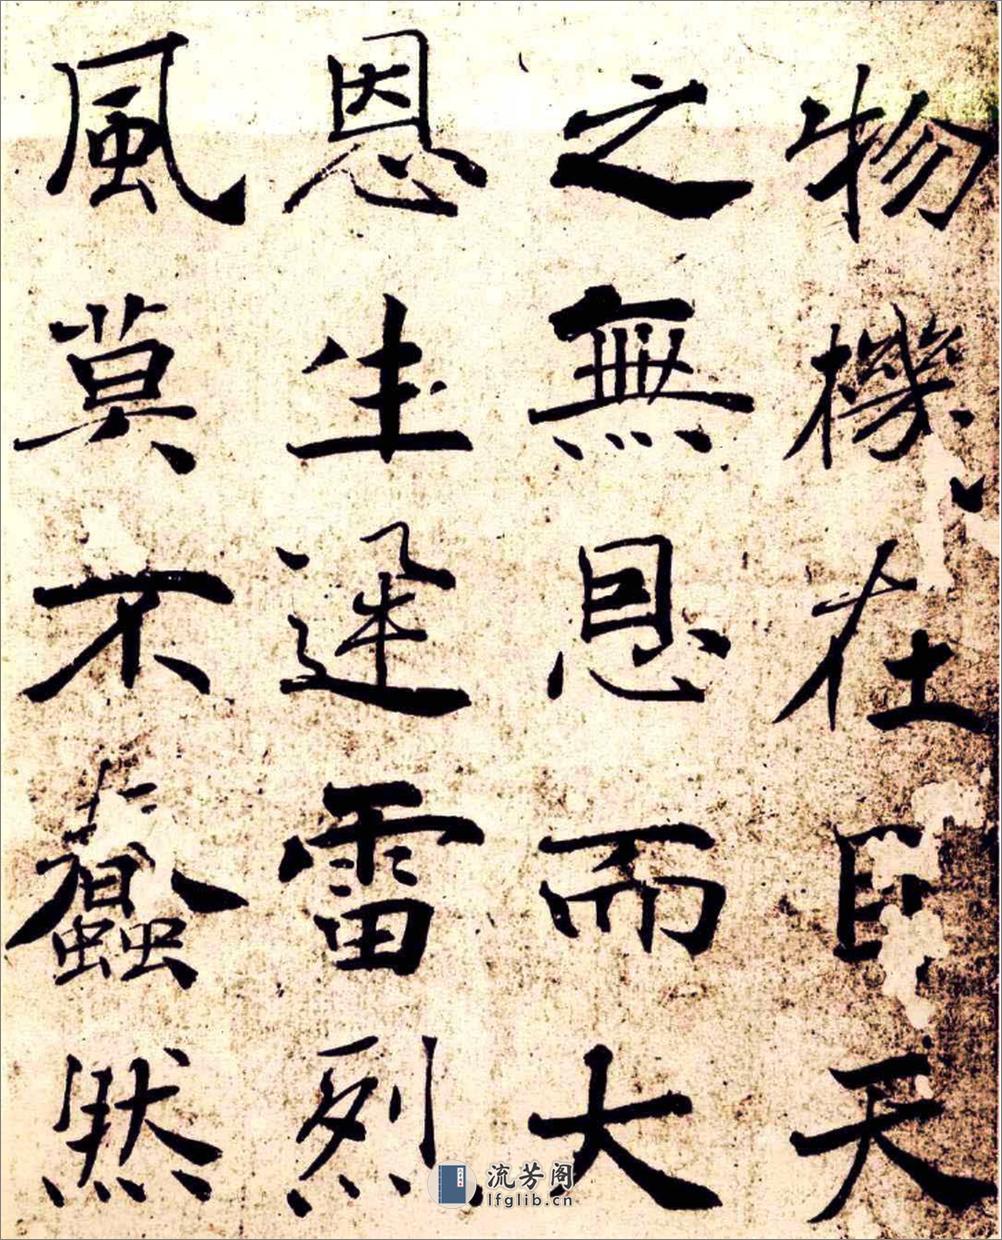 物機在目天
之無恩而大
恩生迅雷烈
風莫不蠢然
流芳阁
lfglib.cn